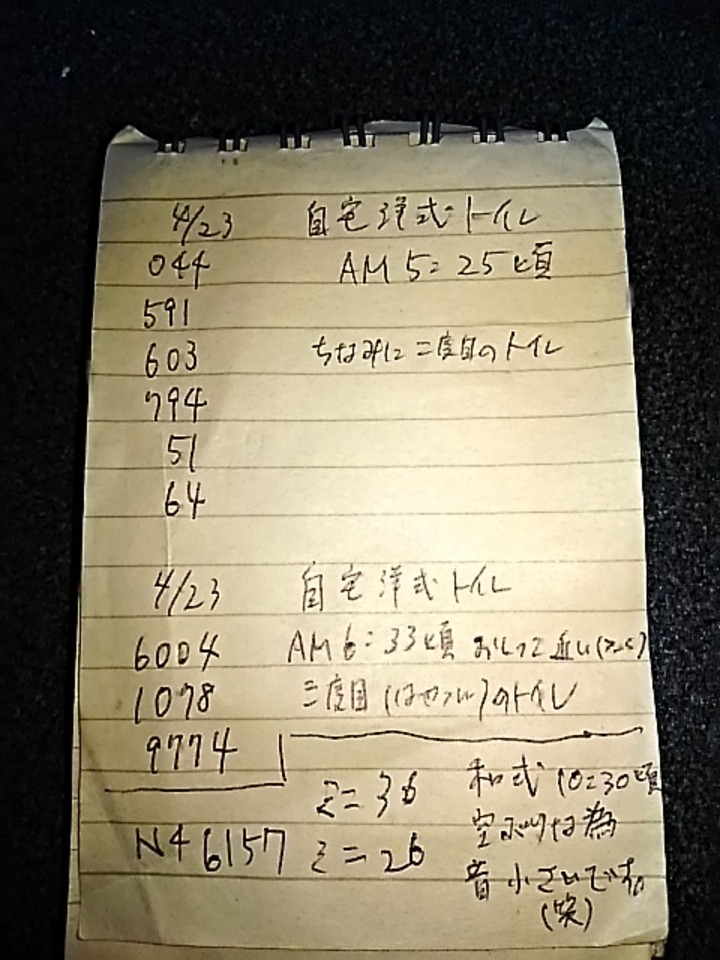 4/23 自宅洋式トイレ
044 AM 5:25頃
591
603 ちなみに二度目のトイレ
794
51
64
4/23 自宅洋式トイレ
6004 AM 6:33頃 おしっこ近い
1078 三度目 のトイレ
9774
和式 10:30頃
=36
空ぶりな為
N4 6157
=26
音小さいです。
(笑)